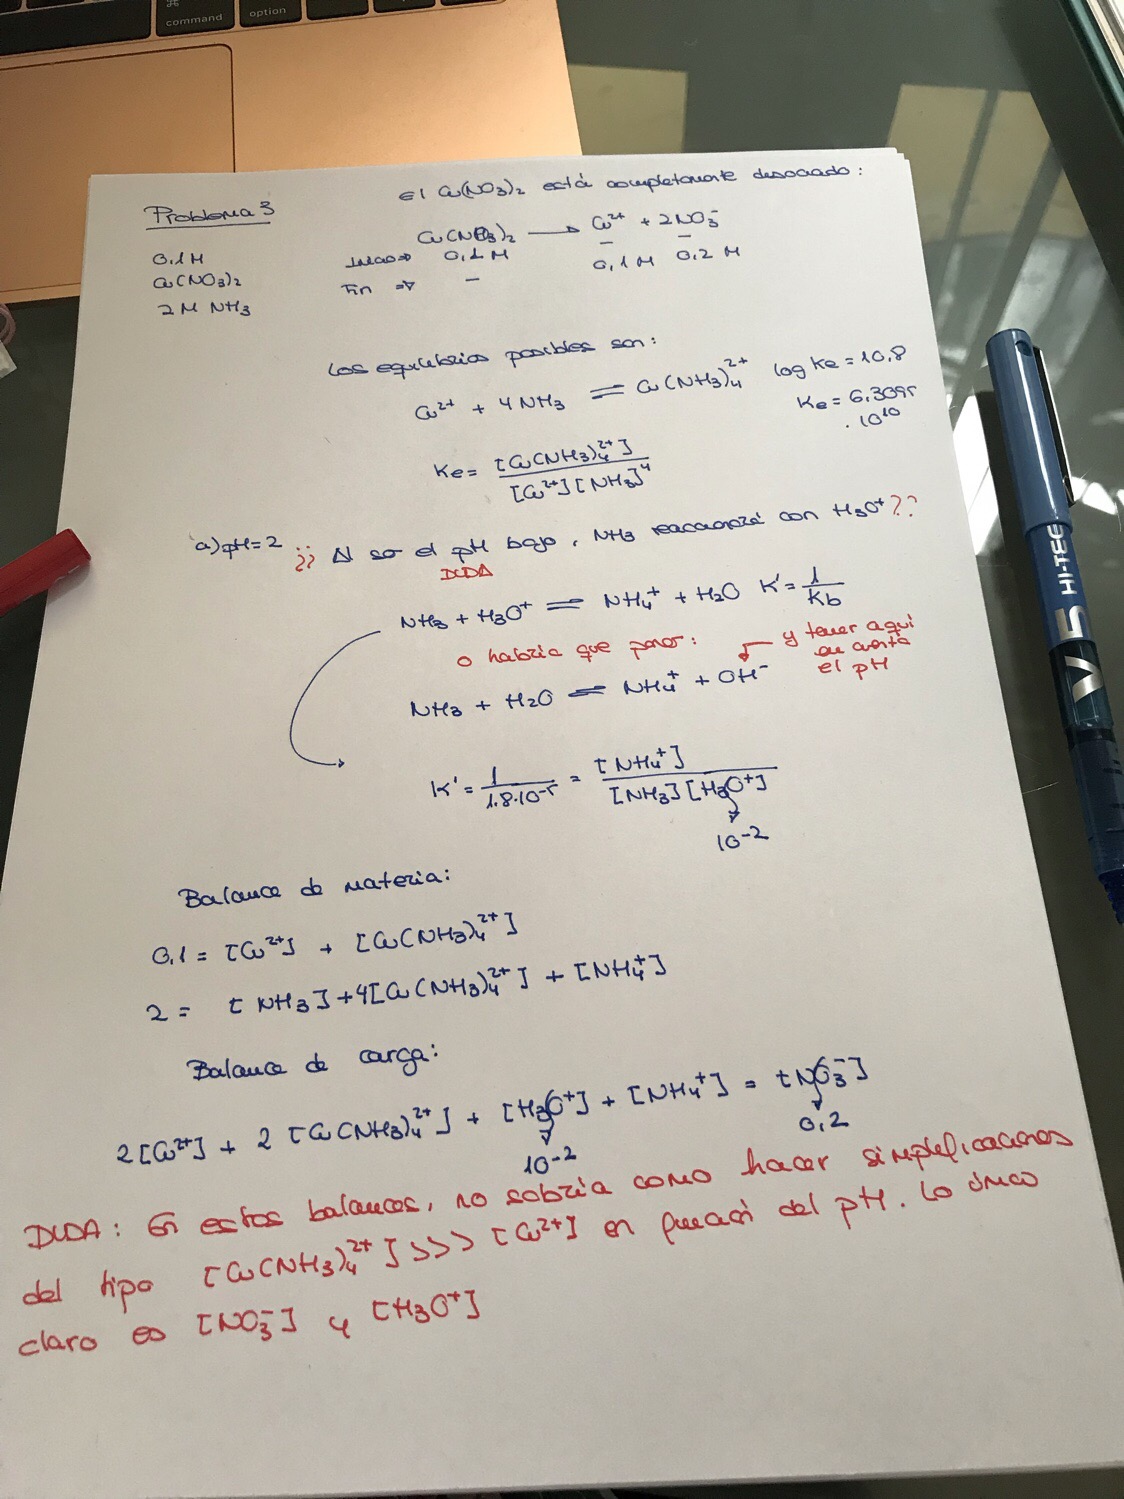 ⌘
command
option
Problema 3
El Cu(NO3)2 está completamente disociado:
0,1M
Cu(NO3)2
2M NH3
Cu(NO3)2 → Cu²⁺ + 2NO3⁻
Inicio ⇒ 0,1 M – –
Fin ⇒ – 0,1 M 0,2 M
Los equilibrios posibles son:
Cu²⁺ + 4NH3 ⇌ Cu(NH3)4²⁺ log Ke = 10,8
Ke = 6,3095 · 10¹⁰
Ke = [Cu(NH3)4²⁺] / [Cu²⁺][NH3]⁴
a) pH=2 ¿¿ Al ser el pH bajo, NH3 reaccionará con H3O⁺??
DUDA
NH3 + H3O⁺ ⇌ NH4⁺ + H2O K' = 1/Kb
o habría que poner:
y tener aquí
en cuenta
el pH
NH3 + H2O ⇌ NH4⁺ + OH⁻
K' = 1/1.8·10⁻⁵ = [NH4⁺] / [NH3][H3O⁺]
10⁻²
Balance de materia:
0,1 = [Cu²⁺] + [Cu(NH3)4²⁺]
2 = [NH3] + 4[Cu(NH3)4²⁺] + [NH4⁺]
Balance de carga:
2[Cu²⁺] + 2[Cu(NH3)4²⁺] + [H3O⁺] + [NH4⁺] = [NO3⁻]
10⁻² 0,2
DUDA: En estos balances, no sabría como hacer simplificaciones
del tipo [Cu(NH3)4²⁺] >>> [Cu²⁺] en función del pH. Lo único
claro es [NO3⁻] y [H3O⁺]
V5 HI-TEC